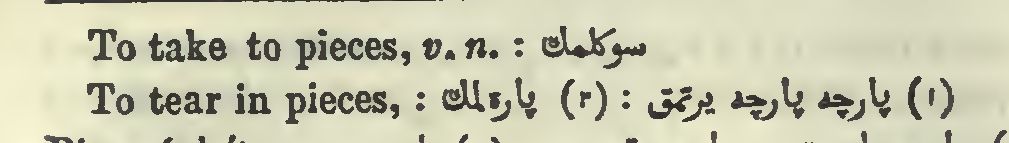 To take to pieces, v. n. : سوكلمك
To tear in pieces, : (١) پارچه پارچه يرتمق : (٢) پارەلمك